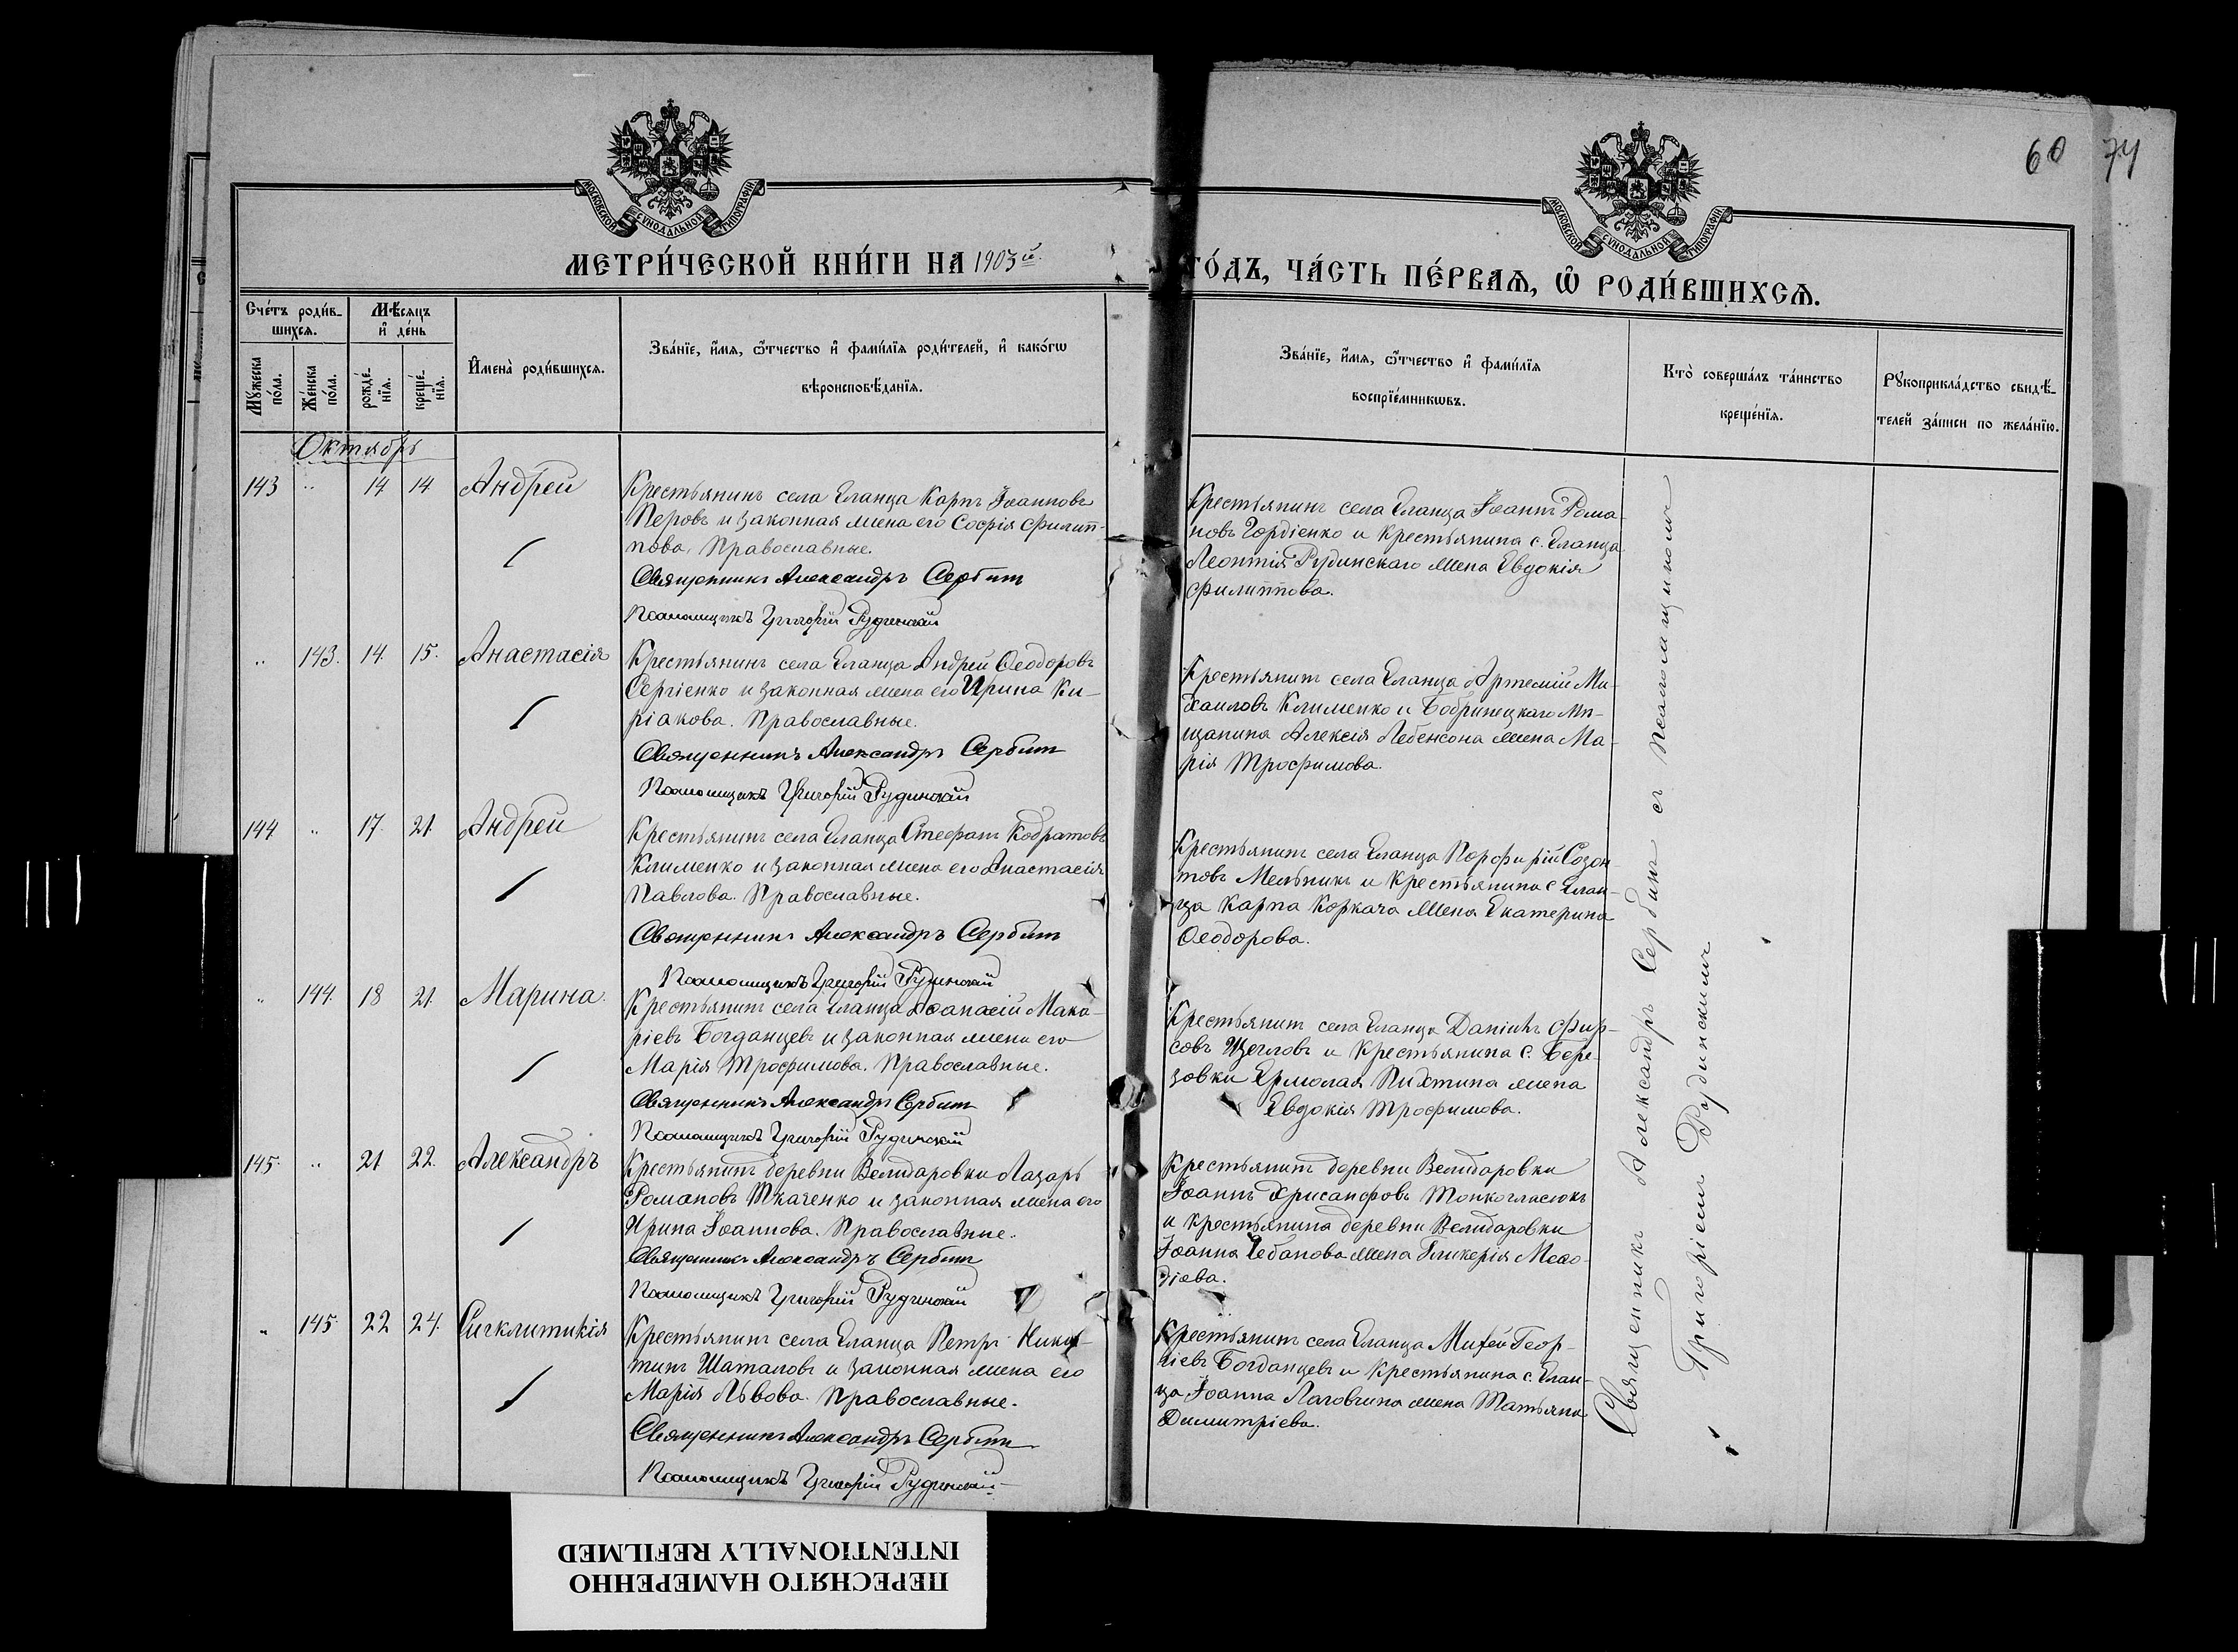 60 74
МОСКОВСКОЙ СѴНОДАЛЬНОЙ ТИПОГРАФІИ
МОСКОВСКОЙ СѴНОДАЛЬНОЙ ТИПОГРАФІИ
МЕТРИ́ЧЕСКОЙ КНИ́ГИ НА 1903й.
ГО́ДЪ, ЧА́СТЬ ПЕ́РВАѦ, Ѽ РОДИ́ВШИХСѦ.
Сче́тъ роди́в-
шихся.
Мѣ́сяцъ
и҆ де́нь
Мꙋ́жеска по́ла.
Же́нска по́ла.
рожде́-
нїѧ.
креще́-
нїѧ.
И҆мена̀ роди́вшихся.
Зва́нїе, и҆́мѧ, ѻ҆́тчество и҆ фами́лїѧ роди́телей, и҆ како́гѡ
вѣроисповѣ́данїѧ.
Зва́нїе, и҆́мѧ, ѻ҆́тчество и҆ фами́лїѧ
воспрїе́мникѡвъ.
Кто̀ соверша́лъ та́инство
креще́нїѧ.
Рꙋкоприкла́дство свидѣ́-
телей за́писи по жела́нїю.
Октябрь
143 " 14 14 Андрей
Крестьянинъ села Еланца Карпъ Іоанновъ
Перовъ и законная жена его Софія Филип-
пова, Православные.
Священникъ Александръ Сербинъ
Псаломщикъ Григорій Рудинскій
Крестьянинъ села Еланца Іоаннъ Рома-
новъ Гордіенко и крестьянина с. Еланца
Леонтія Рудинскаго жена Евдокія
Филиппова.
" 143. 14. 15. Анастасія
Крестьянинъ села Еланца Андрей Ѳеодоровъ
Сергіенко и законная жена его Ирина Ки-
ріакова. Православные.
Священникъ Александръ Сербинъ
Псаломщикъ Григорій Рудинскій
Крестьянинъ села Еланца Артемій Ми-
хаиловъ Клименко и Бобринецкаго мѣ-
щанина Алексія Лебенсона жена Ма-
рія Трофимова.
144 " 17. 21. Андрей
Крестьянинъ села Еланца Стефанъ Кодратовъ
Клименко и законная жена его Анастасія
Павлова. Православные.
Священникъ Александръ Сербинъ
Псаломщикъ Григорій Рудинскій
Крестьянинъ села Еланца Порфирій Созон-
товъ Мельникъ и крестьянина с. Елан-
ца Карпа Коркача жена Екатерина
Ѳеодорова.
" 144. 18 21. Марина.
Крестьянинъ села Еланца Аѳанасій Мака-
ріевъ Богданцевъ и законная жена его
Марія Трофимова. Православные.
Священникъ Александръ Сербинъ
Псаломщикъ Григорій Рудинскій
Крестьянинъ села Еланца Даніилъ Фир-
совъ Щегловъ и крестьянина с. Бере-
зовки Ермолая Пихтина жена
Евдокія Трофимова.
145. " 21 22. Александръ
Крестьянинъ деревни Велидаровки Лазарь
Романовъ Ткаченко и законная жена его
Ирина Іоаннова. Православные.
Священникъ Александръ Сербинъ
Псаломщикъ Григорій Рудинскій
Крестьянинъ деревни Велидаровки
Іоаннъ Хрисанфовъ Тонкогласюкъ
и крестьянина деревни Велидаровки
Іоанна Чебанова жена Гликерія Меѳо-
діева.
" 145. 22 24. Сигклитикія
Крестьянинъ села Еланца Петръ Ники-
тинъ Шаталовъ и законная жена его
Марія Львова. Православные.
Священникъ Александръ Сербинъ
Псаломщикъ Григорій Рудинскій
Крестьянинъ села Еланца Михей Геор-
гіевъ Богданцевъ и крестьянина с. Елан-
ца Іоанна Лаговчина жена Татьяна
Димитріева.
Священникъ Александръ Сербинъ съ псаломщикомъ
Григоріемъ Рудинскимъ
ПЕРЕСНЯТО НАМЕРЕННО
INTENTIONALLY REFILMED